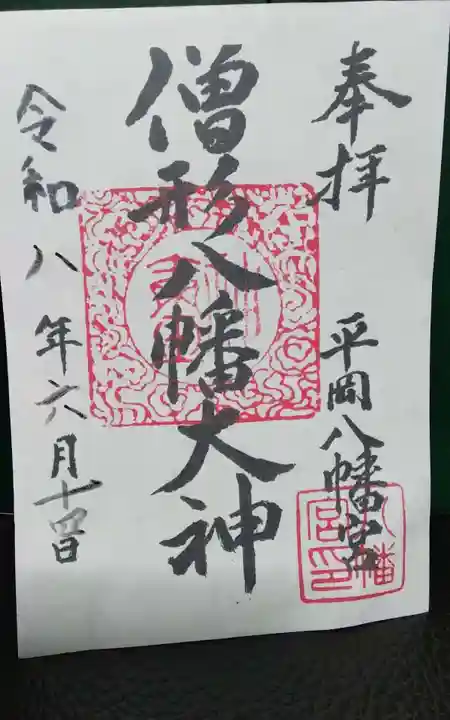 奉拝
平岡八幡宮
僧形八幡大神
令和八年六月十四日
八幡
宮印